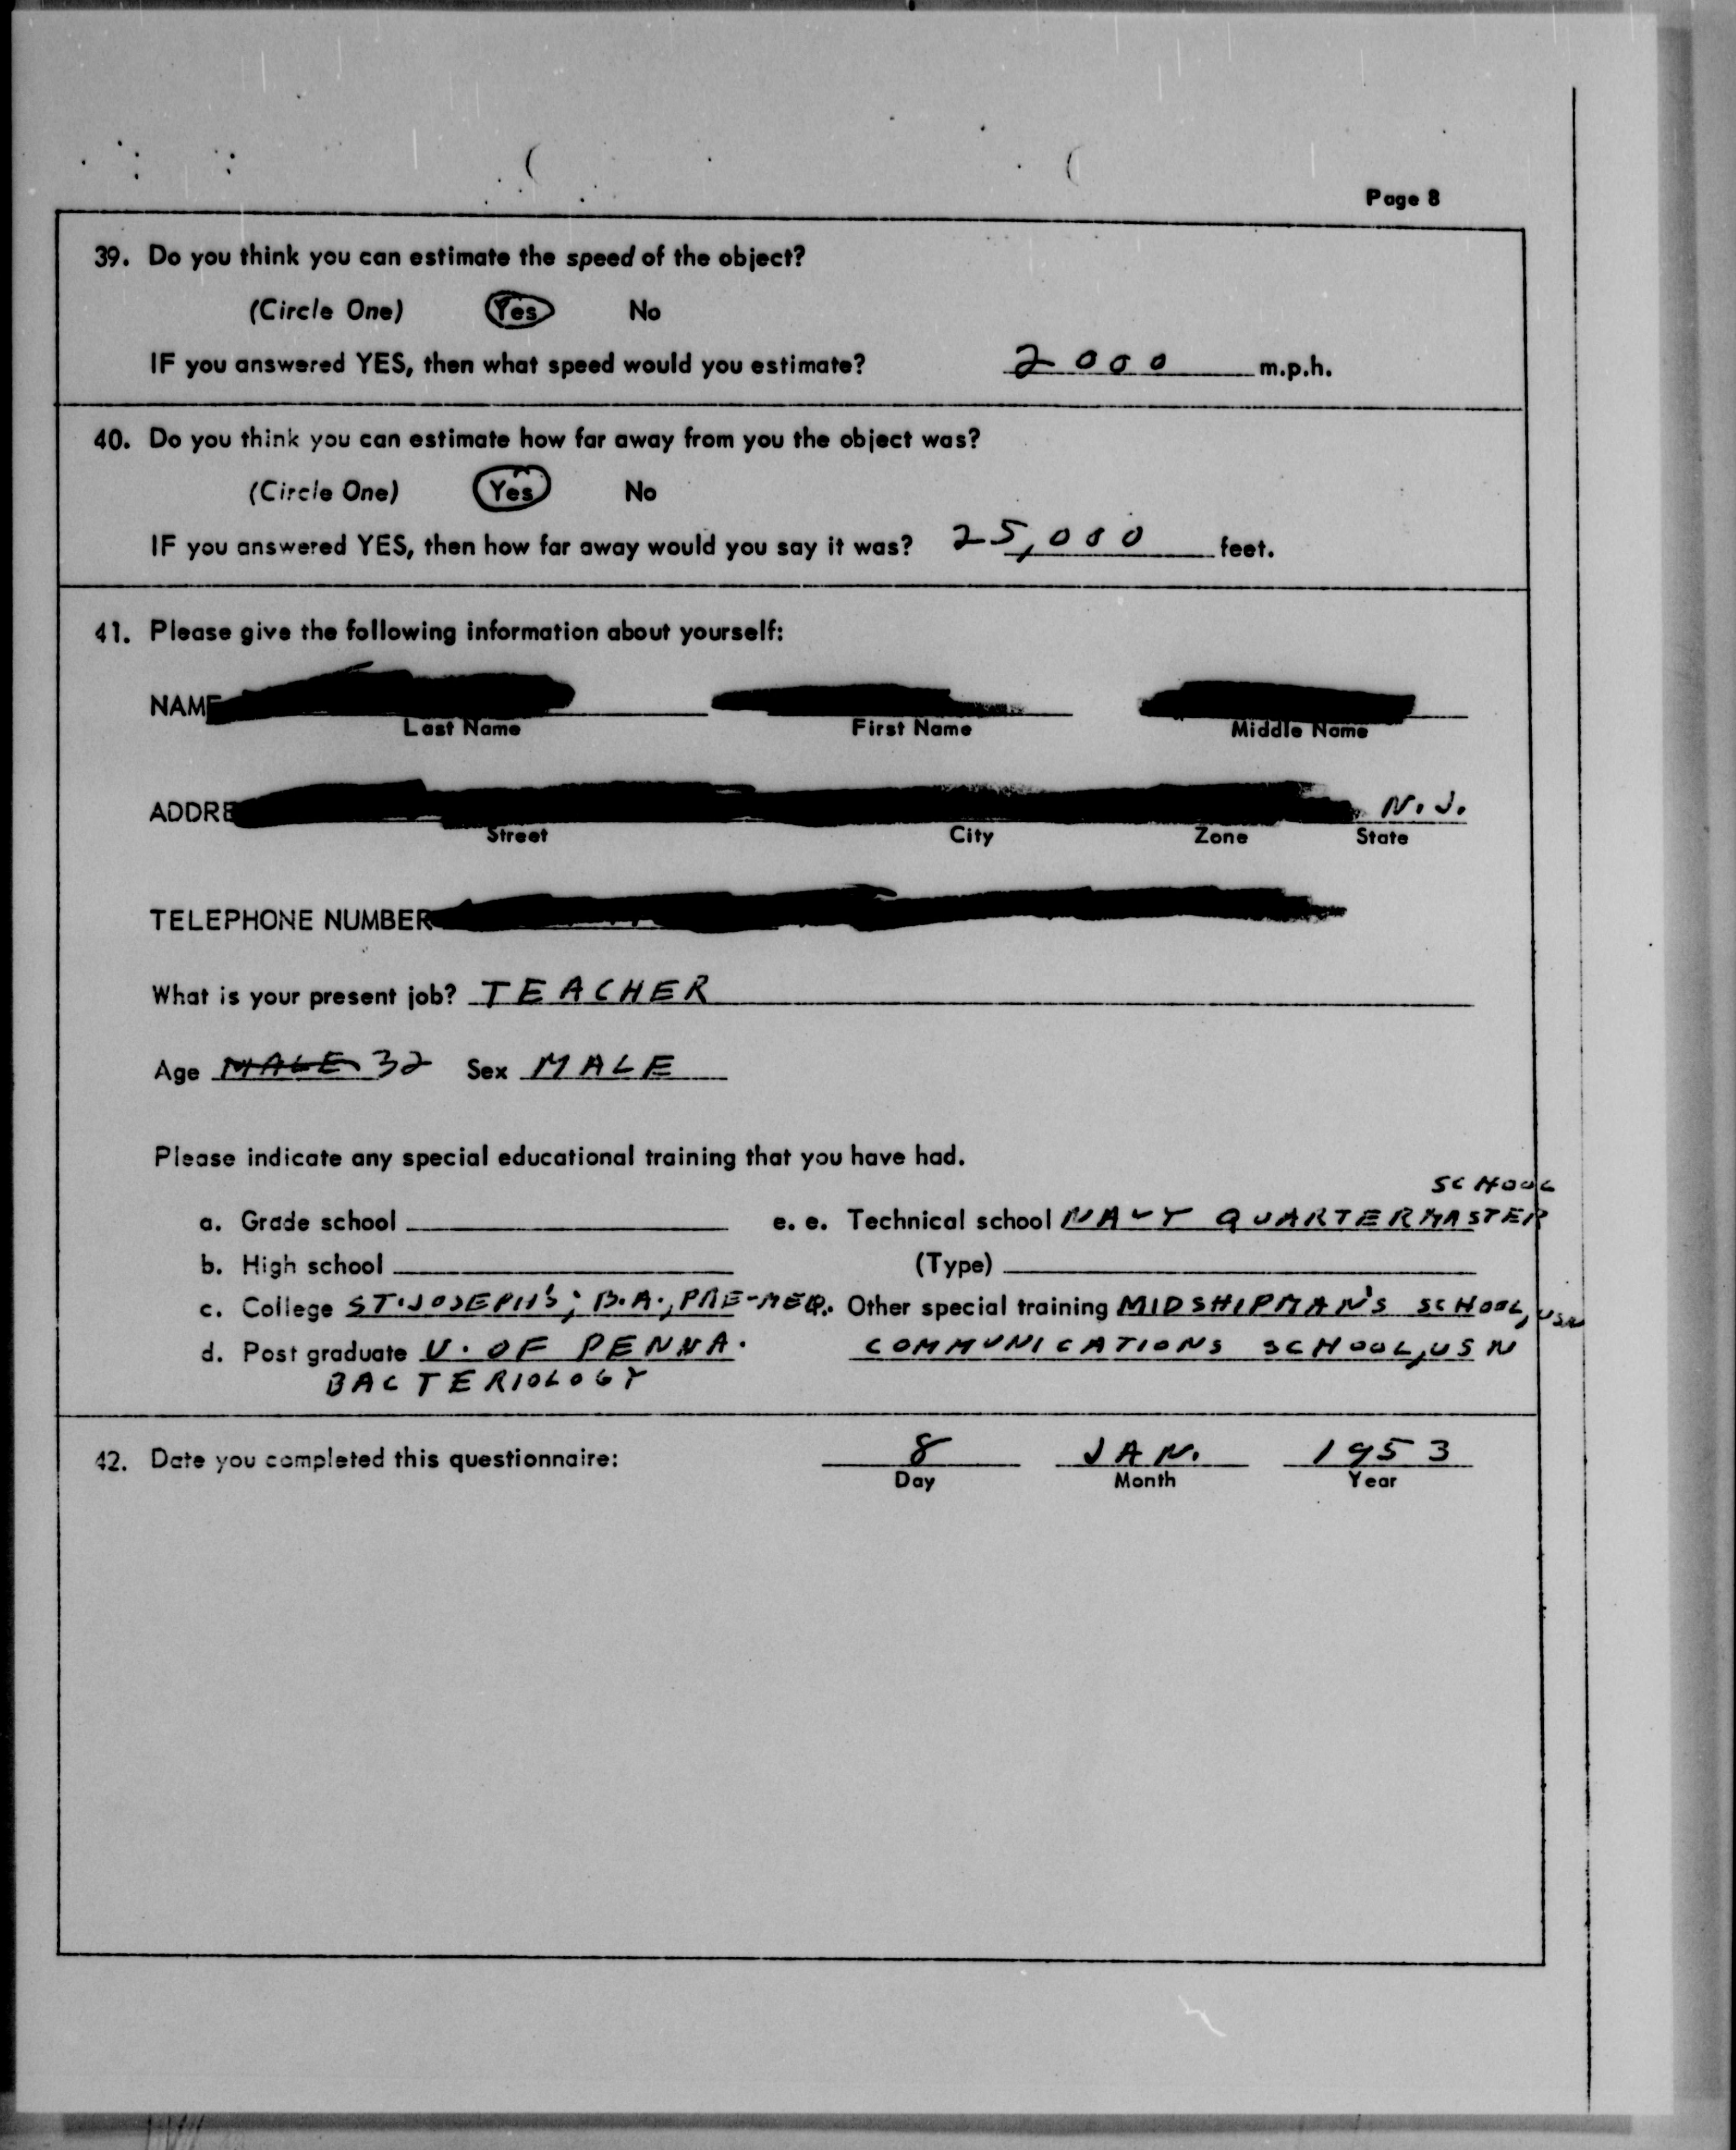 Page 8
39. Do you think you can estimate the speed of the object?
(Circle One) Yes No
IF you answered YES, then what speed would you estimate? 2000 m.p.h.
40. Do you think you can estimate how far away from you the object was?
(Circle One) Yes No
IF you answered YES, then how far away would you say it was? 25,000 feet.
41. Please give the following information about yourself:
NAME
Last Name First Name Middle Name
ADDRE N.J.
Street City Zone State
TELEPHONE NUMBER
What is your present job? TEACHER
Age MALE 32 Sex MALE
Please indicate any special educational training that you have had.
SCHOOL
a. Grade school e. e. Technical school NAVY QUARTERMASTER
b. High school (Type)
c. College ST. JOSEPH'S; B.A., PRE-MED. Other special training MIDSHIPMAN'S SCHOOL, USN
d. Post graduate U. OF PENNA. COMMUNICATIONS SCHOOL, USN
BACTERIOLOGY
42. Date you completed this questionnaire: 8 JAN. 1953
Day Month Year